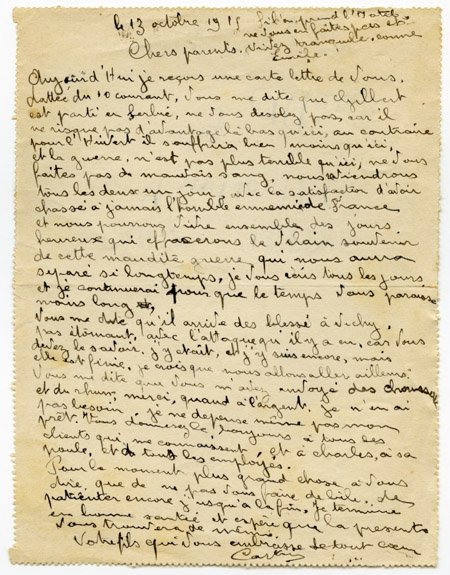 le 13 octobre 1915
ne vous en faites pas et
Chers parents. vivez tranquille. comme
Emile.
Aujourd'Hui je reçois une carte lettre de vous.
dattée du 10 courant, vous me dite que Gilbert
est parti en Serbie, ne vous desolez pas, car il
ne risque pas d'avantage là bas qu'ici, au contraire
pour l'Hivert il souffrira bien moins qu'ici,
et la guerre, n'est pas plus terrible qu'ici, ne vous
faites pas de mauvais sang, nous reviendrons
tous les deux un jour, avec la satisfaction d'avoir
chassé à jamais l'horrible ennemie de France
et nous pourrons vivre ensemble des jours
heureux qui effacerons le vilain souvenir
de cette maudite guerre, qui nous aura
separé si longtemps, je vous ecris tous les jours
et je continuerai pour que le temps vous paraisse
moins long
Vous me dite qu'il arrive des blessé à Vichy,
pas étonnant, avec l'attaque qu'il y a eu, car vous
devez le savoir, j'y était, et j'y suis encore, mais
elle est finie, je crois que nous allons aller ailleurs.
Vous me dite que vous m'avez envoyé des
et du rhum, merci, quand à l'argent, je n'en ai
pas besoin, je ne depense même pas mon
prêt. Vous donnerez le bonjours à tous les
clients qui me connaissent, et à charles, à sa
poule, et à tous les employés.
Pour le moment plus grand chose à vous
dire, que de ne pas vous faire de bile, de
patienter encore jusqu'à la fin, je termine
en bonne santée et espère que la presente
vous trouvera de même.
Votre fils qui vous embrasse de tout coeur